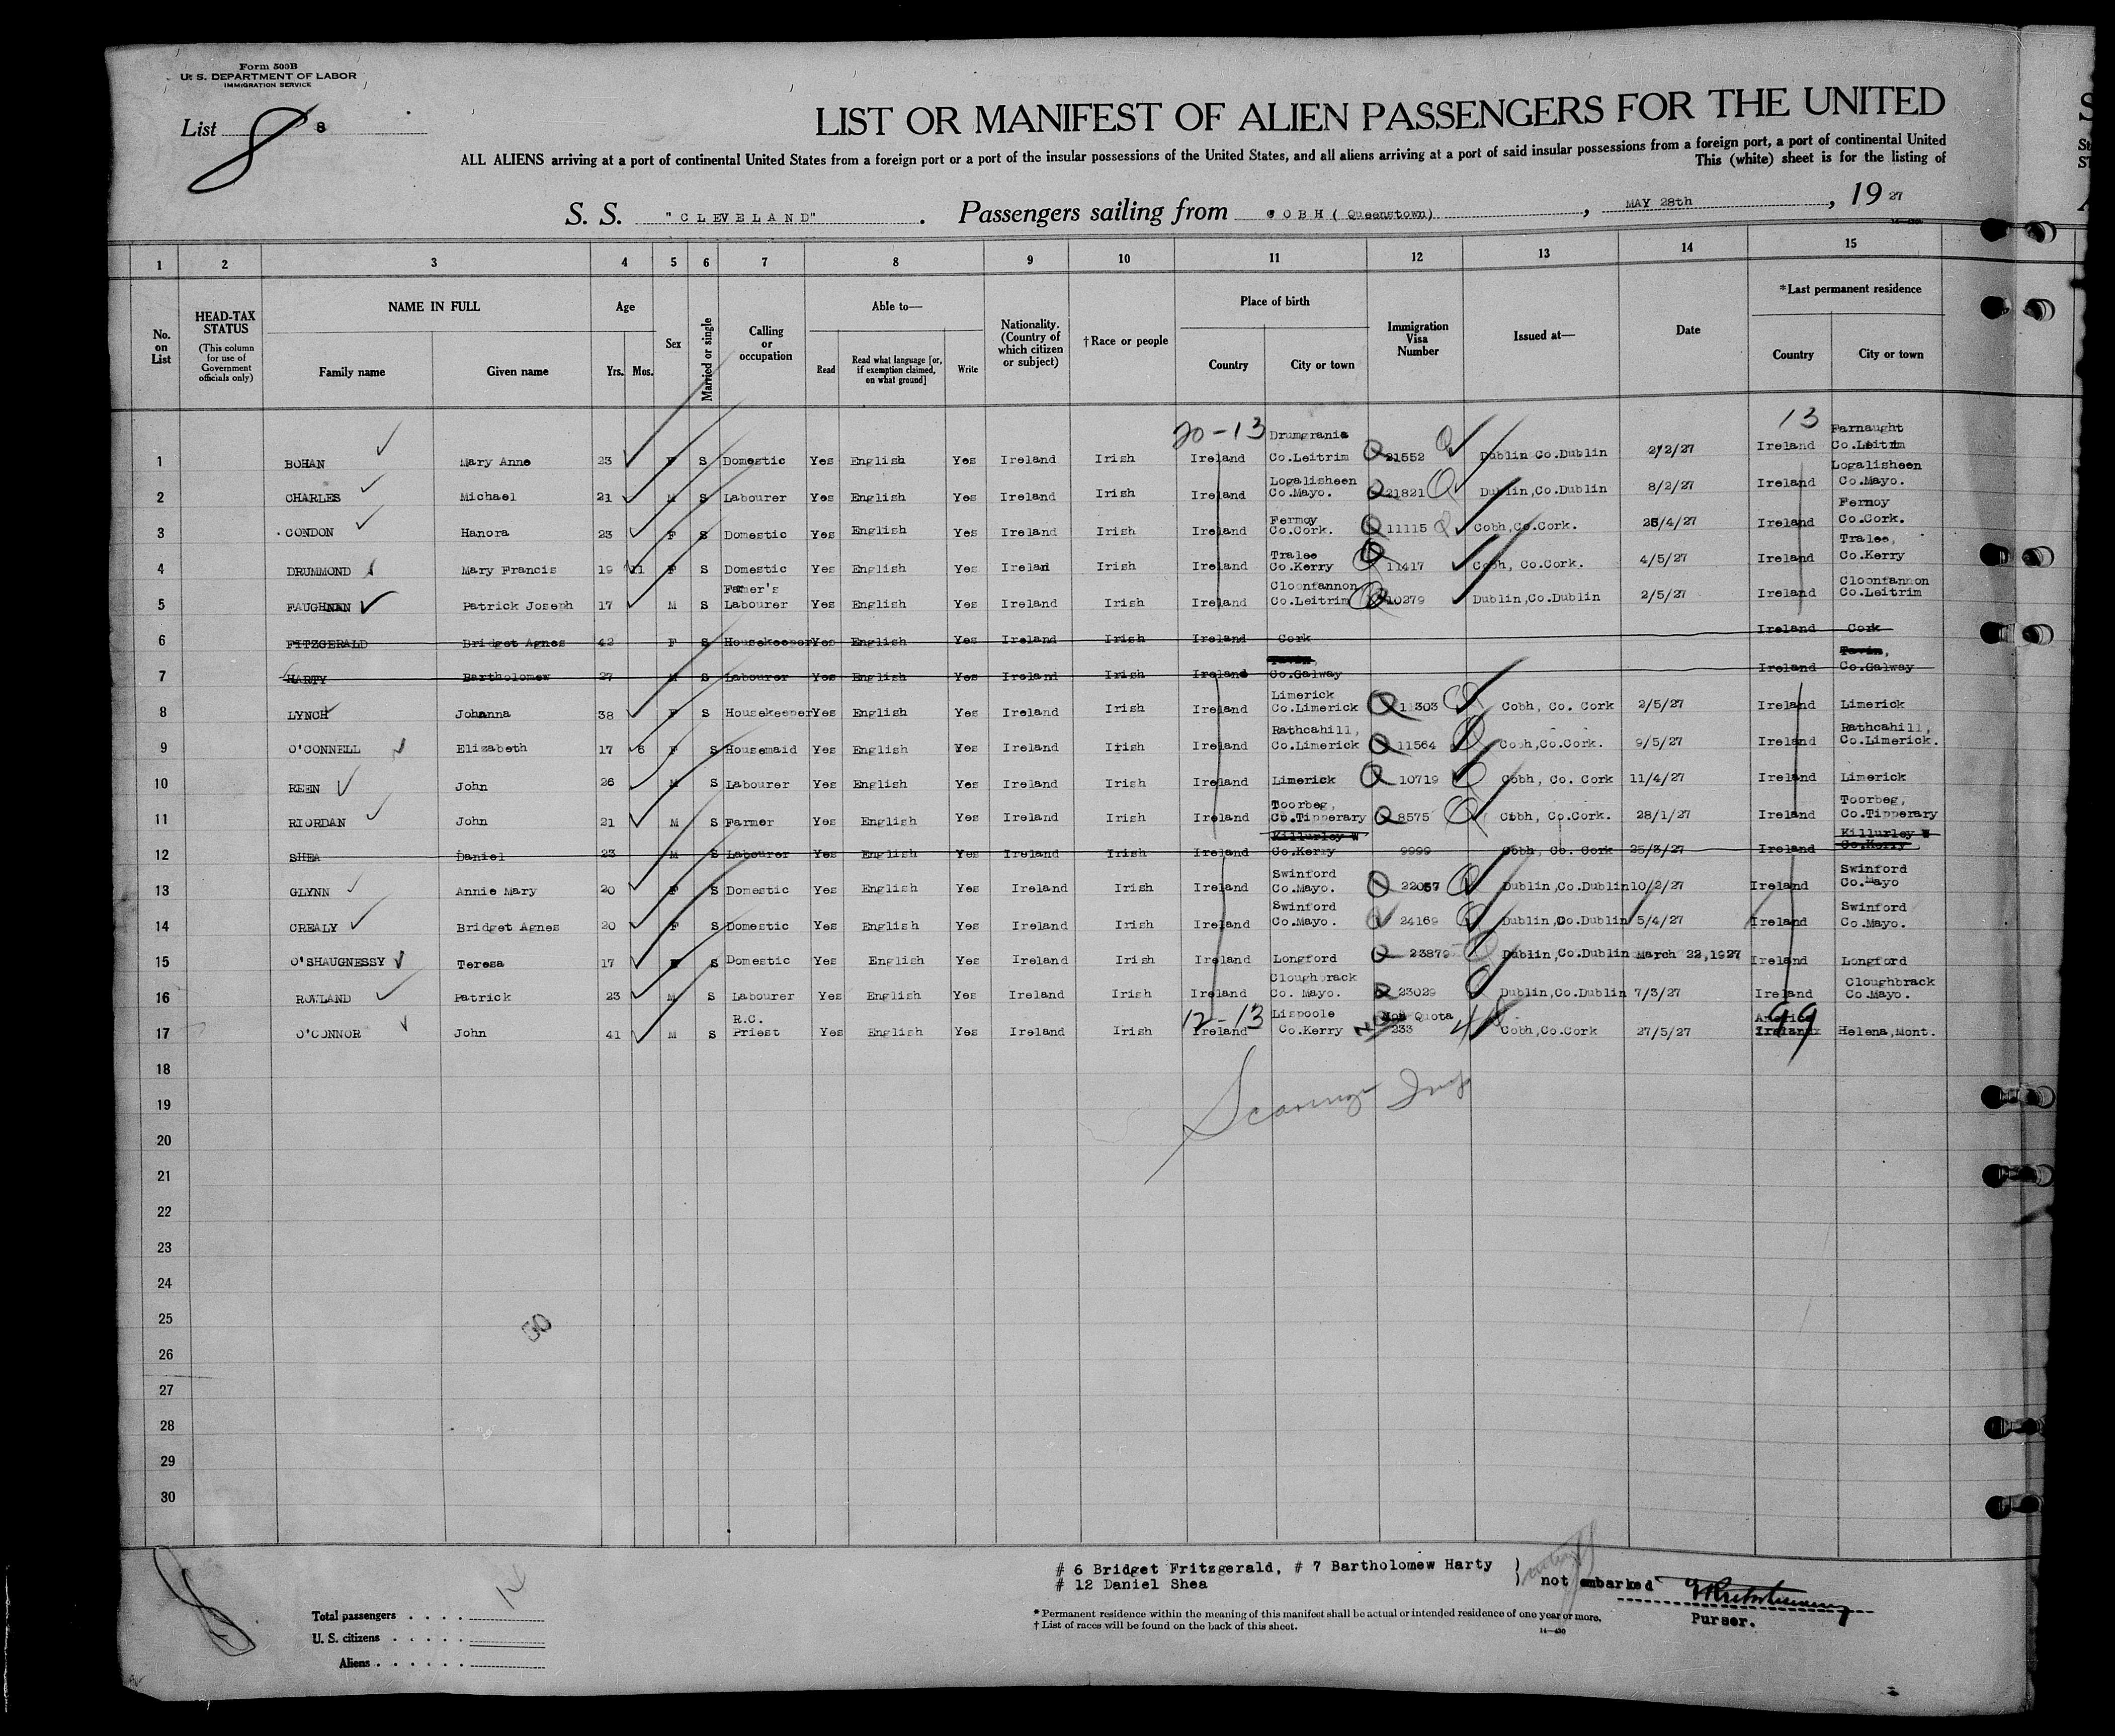 Form 500B
U. S. DEPARTMENT OF LABOR
IMMIGRATION SERVICE
List 8 8
LIST OR MANIFEST OF ALIEN PASSENGERS FOR THE UNITED
ALL ALIENS arriving at a port of continental United States from a foreign port or a port of the insular possessions of the United States, and all aliens arriving at a port of said insular possessions from a foreign port, a port of continental United
This (white) sheet is for the listing of
S. S. "CLEVELAND". Passengers sailing from COBH (Queenstown), MAY 28th, 1927
1 2 3 4 5 6 7 8 9 10 11 12 13 14 15
No. on List
HEAD-TAX STATUS
(This column for use of Government officials only)
NAME IN FULL
Family name Given name
Age
Yrs. Mos.
Sex
Married or single
Calling or occupation
Able to—
Read
Read what language [or, if exemption claimed, on what ground]
Write
Nationality. (Country of which citizen or subject)
†Race or people
Place of birth
Country City or town
Immigration Visa Number
Issued at—
Date
*Last permanent residence
Country City or town
20-13 13
1 BOHAN Mary Anne 23 F S Domestic Yes English Yes Ireland Irish Ireland Drumgrania Co.Leitrim Q 21552 Dublin Co.Dublin 2/2/27 Ireland Farnaught Co.Leitrim
2 CHARLES Michael 21 M S Labourer Yes English Yes Ireland Irish Ireland Logalisheen Co.Mayo. Q 21821 Dublin,Co.Dublin 8/2/27 Ireland Logalisheen Co.Mayo.
3 CONDON Hanora 23 F S Domestic Yes English Yes Ireland Irish Ireland Fermoy Co.Cork. Q 11115 Cobh,Co.Cork. 26/4/27 Ireland Fermoy Co.Cork.
4 DRUMMOND Mary Francis 19 11 F S Domestic Yes English Yes Irelan Irish Ireland Tralee Co.Kerry Q 11417 Cobh, Co.Cork. 4/5/27 Ireland Tralee, Co.Kerry
5 FAUGHNAN Patrick Joseph 17 M S Farmer's Labourer Yes English Yes Ireland Irish Ireland Cloonfannon Co.Leitrim Q 10279 Dublin,Co.Dublin 2/5/27 Ireland Cloonfannon Co.Leitrim
6 FITZGERALD Bridget Agnes 42 F S Housekeeper Yes English Yes Ireland Irish Ireland Cork Ireland Cork
7 HARTY Bartholomew 27 M S Labourer Yes English Yes Ireland Irish Ireland Co.Galway Ireland Co.Galway
8 LYNCH Johanna 38 F S Housekeeper Yes English Yes Ireland Irish Ireland Limerick Co.Limerick Q 11303 Cobh, Co. Cork 2/5/27 Ireland Limerick
9 O'CONNELL Elizabeth 17 6 F S Housemaid Yes English Yes Ireland Irish Ireland Rathcahill, Co.Limerick Q 11564 Cobh,Co.Cork. 9/5/27 Ireland Rathcahill, Co.Limerick.
10 REEN John 26 M S Labourer Yes English Yes Ireland Irish Ireland Limerick Q 10719 Cobh, Co. Cork 11/4/27 Ireland Limerick
11 RIORDAN John 21 M S Farmer Yes English Yes Ireland Irish Ireland Toorbeg, Co.Tipperary Q 8575 Cobh, Co.Cork. 28/1/27 Ireland Toorbeg, Co.Tipperary
12 SHEA Daniel 23 M S Labourer Yes English Yes Ireland Irish Ireland Killurley W Co.Kerry 9999 Cobh, Co. Cork 25/3/27 Ireland Killurley W Co.Kerry
13 GLYNN Annie Mary 20 F S Domestic Yes English Yes Ireland Irish Ireland Swinford Co.Mayo. Q 22057 Dublin,Co.Dublin 10/2/27 Ireland Swinford Co.Mayo
14 CREALY Bridget Agnes 20 F S Domestic Yes English Yes Ireland Irish Ireland Swinford Co.Mayo. 24169 Dublin,Co.Dublin 5/4/27 Ireland Swinford Co.Mayo.
15 O'SHAUGNESSY Teresa 17 F S Domestic Yes English Yes Ireland Irish Ireland Longford Q 23879 Dublin,Co.Dublin March 22,1927 Ireland Longford
16 ROWLAND Patrick 23 M S Labourer Yes English Yes Ireland Irish Ireland Cloughbrack Co. Mayo. Q 23029 Dublin,Co.Dublin 7/3/27 Ireland Cloughbrack Co.Mayo.
17 O'CONNOR John 41 M S R.C. Priest Yes English Yes Ireland Irish 12-13 Ireland Lispoole Co.Kerry Non Quota 233 Cobh,Co.Cork 27/5/27 99 Ireland Helena,Mont.
18
19
20
21
22
23
24
25
26
27
28
29
30
50
# 6 Bridget Fritzgerald, # 7 Bartholomew Harty )
# 12 Daniel Shea ) not embarked
Purser.
Total passengers
U. S. citizens
Aliens
* Permanent residence within the meaning of this manifest shall be actual or intended residence of one year or more.
† List of races will be found on the back of this sheet.
14—430